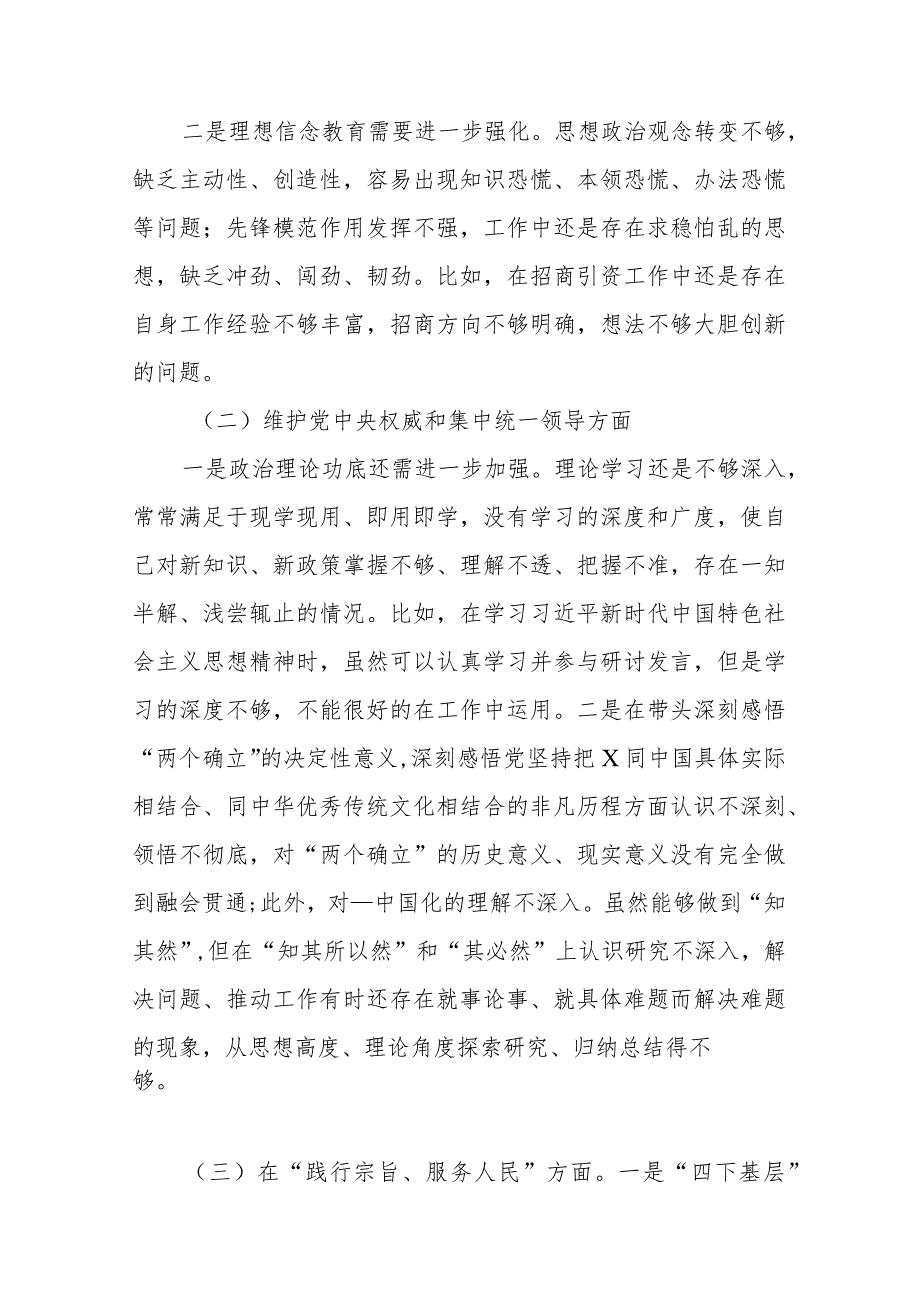 二是理想信念教育需要进一步强化。思想政治观念转变不够，
缺乏主动性、创造性，容易出现知识恐慌、本领恐慌、办法恐慌
等问题；先锋模范作用发挥不强，工作中还是存在求稳怕乱的思
想，缺乏冲劲、闯劲、韧劲。比如，在招商引资工作中还是存在
自身工作经验不够丰富，招商方向不够明确，想法不够大胆创新
的问题。
（二）维护党中央权威和集中统一领导方面
一是政治理论功底还需进一步加强。理论学习还是不够深入，
常常满足于现学现用、即用即学，没有学习的深度和广度，使自
己对新知识、新政策掌握不够、理解不透、把握不准，存在一知
半解、浅尝辄止的情况。比如，在学习习近平新时代中国特色社
会主义思想精神时，虽然可以认真学习并参与研讨发言，但是学
习的深度不够，不能很好的在工作中运用。二是在带头深刻感悟
“两个确立”的决定性意义,深刻感悟党坚持把 X 同中国具体实际
相结合、同中华优秀传统文化相结合的非凡历程方面认识不深刻、
领悟不彻底，对“两个确立”的历史意义、现实意义没有完全做
到融会贯通;此外，对—中国化的理解不深入。虽然能够做到“知
其然”,但在“知其所以然”和“其必然”上认识研究不深入，解
决问题、推动工作有时还存在就事论事、就具体难题而解决难题
的现象，从思想高度、理论角度探索研究、归纳总结得不
够。
（三）在“践行宗旨、服务人民”方面。一是“四下基层”